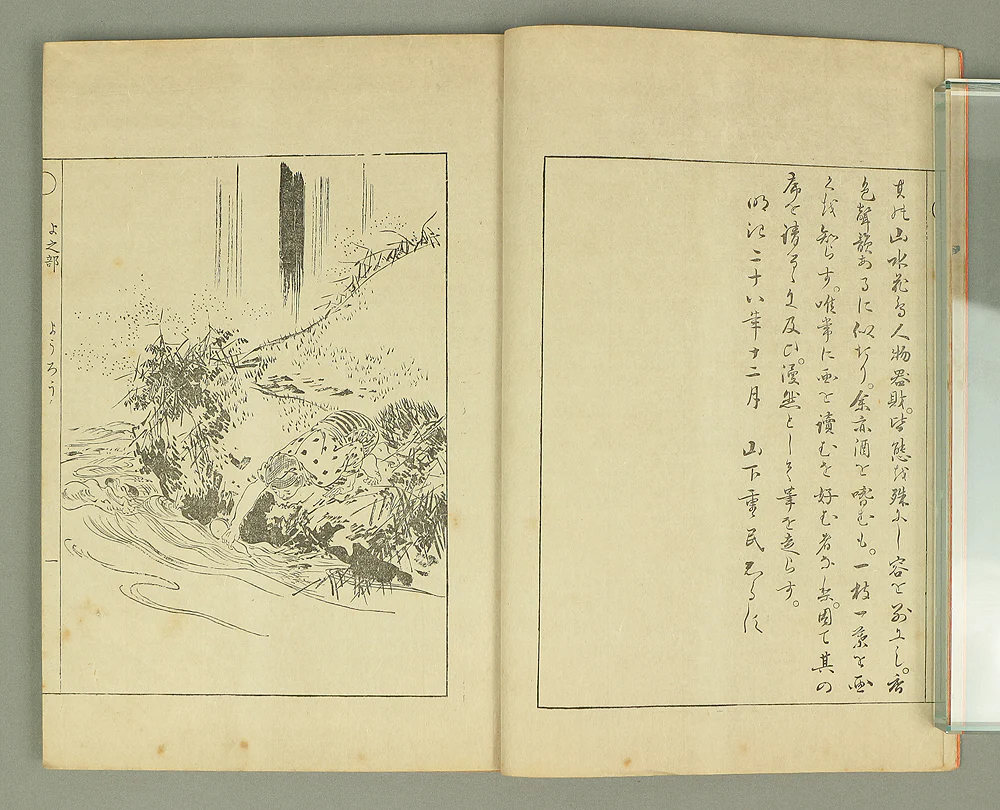 其 山水花鳥人物器財。皆態を殊にし容を別にし。香
色聲韻あるに似たり。余亦酒を嗜むも。一枝一葉を画
く 知らず。唯常に画を讀むを好む者 。因て其の
序を請 るに及び。漫然として筆を走らす。
明治二十八年十二月　山下重民しるす
よ之部　ようろう　一